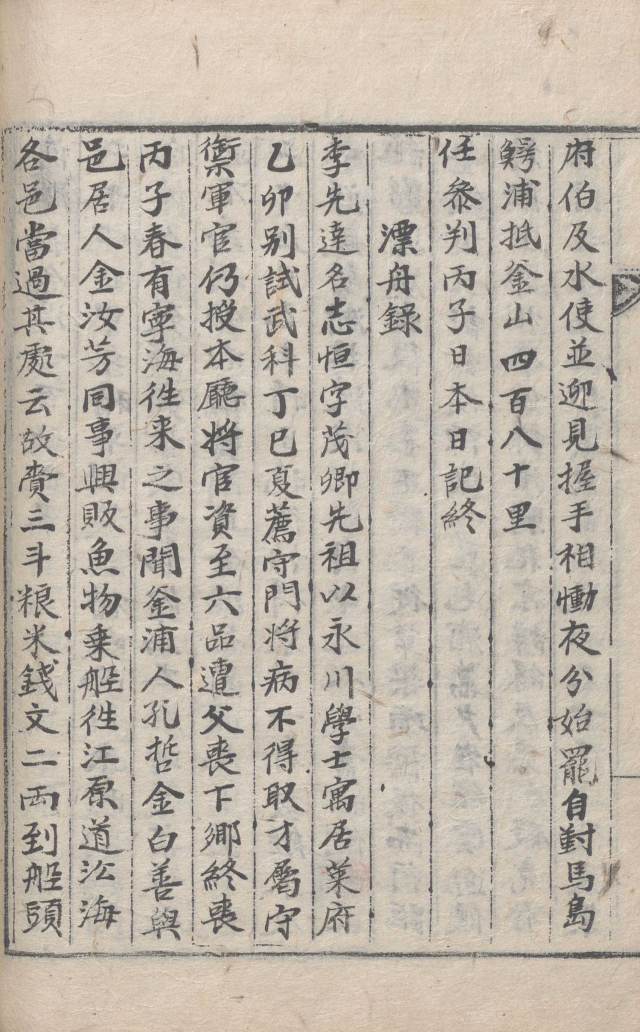 府伯及水使並迎見握手相慟夜分始罷自對馬島
鰐浦抵釜山四百八十里
任叅判丙子日本日記終
漂舟錄
李先達名志恒字茂卿先祖以永川學士寓居萊府
乙卯别試武科丁巳夏薦守門將病不得取才屬守
禦軍官仍授本廳將官資至六品遭父喪下鄉終喪
丙子春有寧海徃来之事聞釜浦人孔哲金白善與
邑居人金汝芳同事興販魚物乗舡徃江原道沿海
各邑當過其處云故賫三斗粮米錢文二兩到舡頭